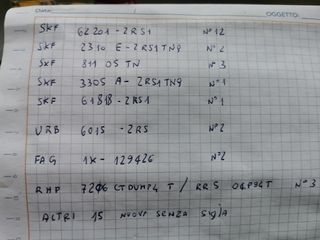 OGGETTO:
SKF 62201-2RS1 N° 12
SKF 2310 E-2RS1TN9 N° 2
SKF 811 05 TN N° 3
SKF 3305 A-2RS1TN9 N° 1
SKF 61818-2RS1 N° 1
URB 6015 -2RS N° 2
FAG 1X-129426 N° 2
RHP 7206 CTDUMP4 T / RRS 04P94T N° 3
ALTRI 15 NUOVI SENZA SIGLA